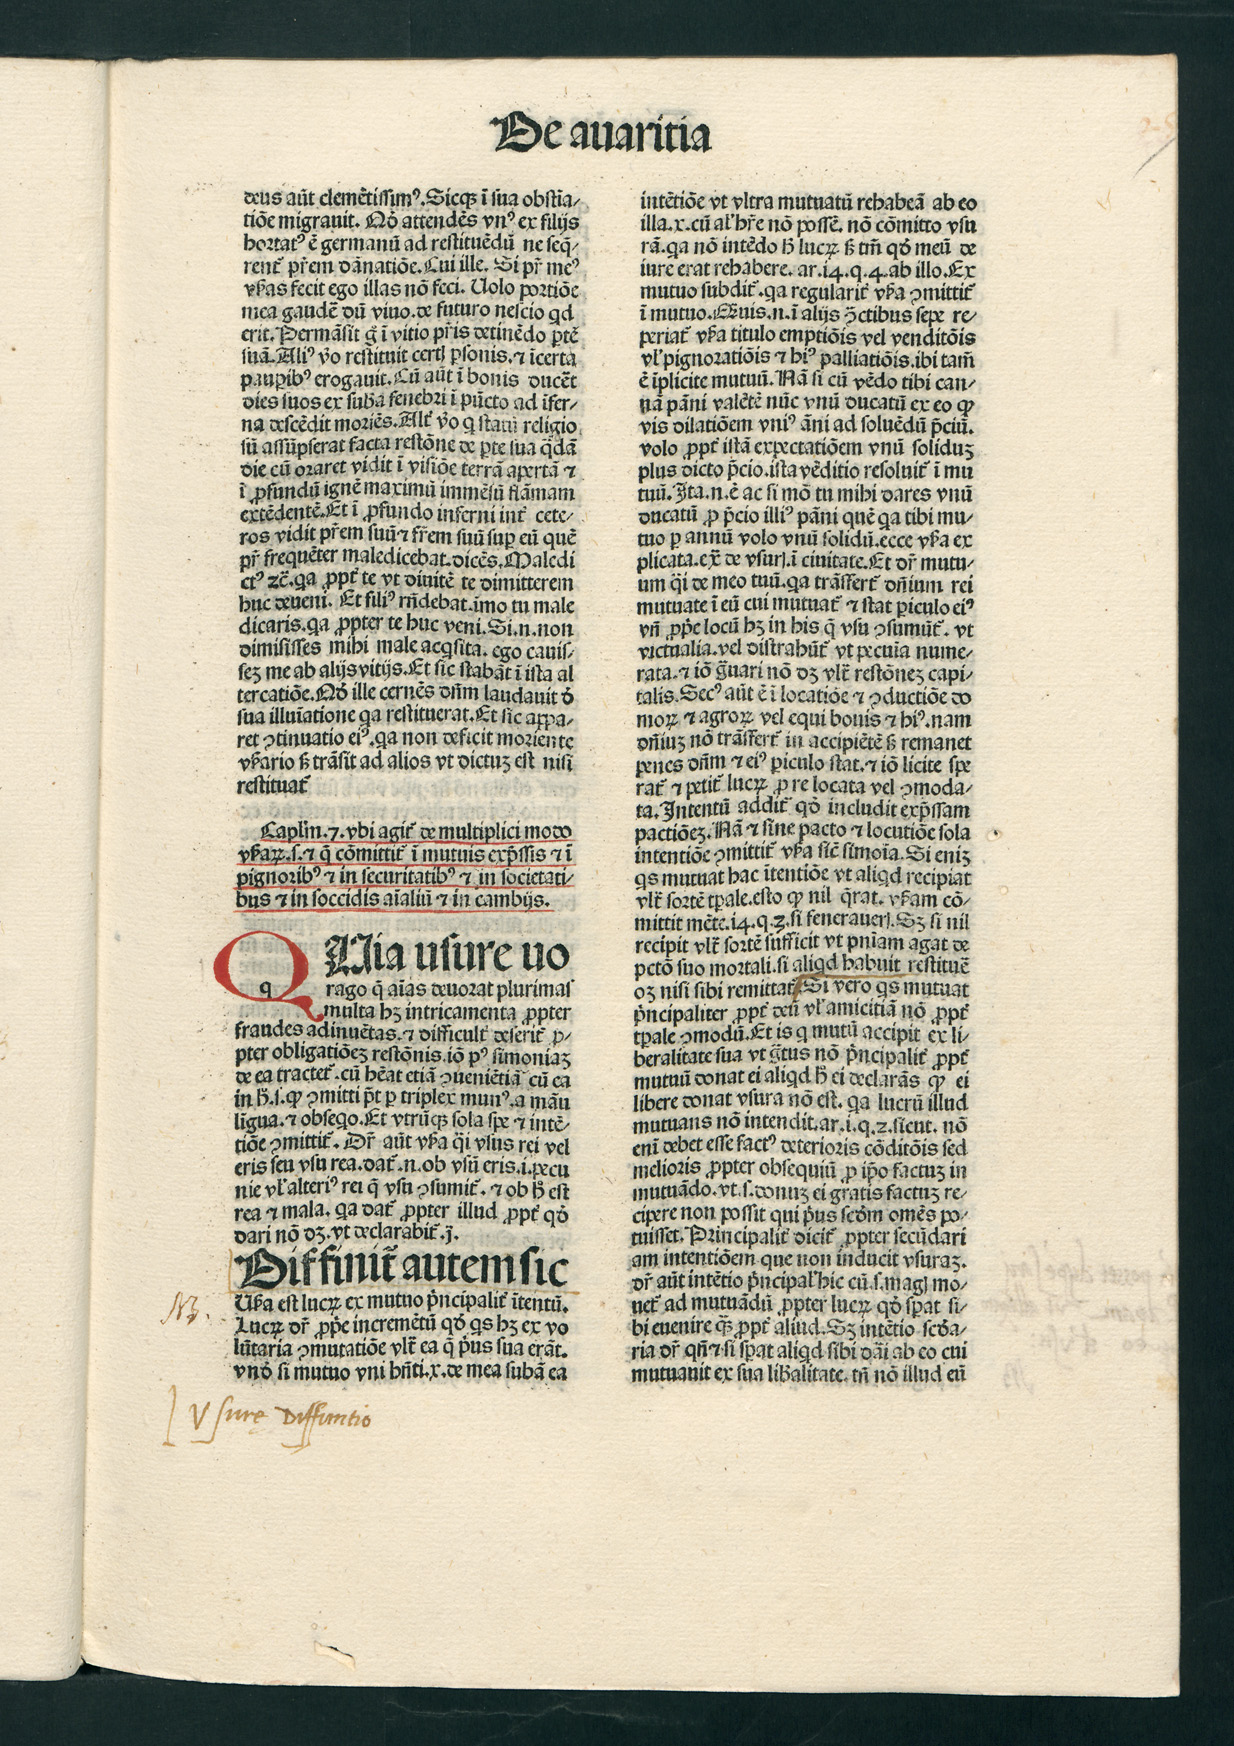 De auaritia
deus aūt clemētissimꝰ. Sicqꝫ ī sua obstīa⸗
tiōe migrauit. Nō attendēs vnꝰ ex filijs
hortatꝰ ē germanū ad restituēdū ne seq̄⸗
renť pr̄em dānatiōe. Cui ille. Si pr̄ meꝰ
vẜas fecit ego illas nō feci. Uolo portiōe
mea gaudē dū viuo. de futuro nescio qd
erit. Permāsit g̊ ī vitio pr̄is detinēdo ꝑtē
suā. Aliꝰ v̊o restituit cert̄ ꝑsonis. ⁊ īcerta
pauꝑibꝰ erogauit. Cū aūt ī bonis ducēt
dies suos ex subā fenebri ī pūcto ad īfer⸗
na descēdit moriēs. Alť v̊o q statū religio
sū assūpserat facta restōne de ꝑte sua q̄dā
die cū oraret vidit ī visiōe terrā apertā ⁊
ī ꝓfundū ignē maximū immēsū flāmam
extēdentē. Et ī ꝓfundo inferni inť cete⸗
ros vidit pr̄em suū ⁊ fr̄em suū suꝑ eū quē
pr̄ frequēter maledicebat. dicēs. Maledi
ctꝰ ⁊c̄. qa ꝓpť te vt diuitē te dimitterem
huc deueni. Et filiꝰ rn̄debat. īmo tu male
dicaris. qa ꝓpter te huc veni. Si. n. non
dimisisses mihi male acq̄sita. ego cauis⸗
seꝫ me ab alijs vitijs. Et sic stabāt ī ista al
tercatiōe. Nō ille cernēs dn̄m laudauit d̄
sua illuīatione qa restituerat. Et sic appa⸗
ret ꝯtinuatio eiꝰ. qa non deficit moriente
vẜario ß trāsit ad alios vt dictuꝫ est nisi
restituať
Caplm. 7. vbi agiť de multiplici modo
vẜaꝝ. s. ⁊ q̄ cōmittiť ī mutuis exp̄ssis ⁊ ī
pignoribꝰ ⁊ in securitatibꝰ ⁊ in societati⸗
bus ⁊ in soccidis aīaliū ⁊ in cambijs.
QUia usure uo
q
rago q̄ aīas deuorat plurimas
multa hꝫ intricamenta ꝓpter
fraudes adinuētas. ⁊ difficulť deseriť ꝓ⸗
pter obligatiōeꝫ restōnis. iō pꝰ simoniaꝫ
de ea tracteť. cū hēat etiā ꝯueniētiā cū ea
in ħ. s. ꝙ ꝯmitti p̄t ꝑ triplex munꝰ. a manu
līgua. ⁊ obseqo. Et vtrūqꝫ sola spe ⁊ intē⸗
tiōe ꝯmittiť. Dr̄ aūt vẜa q̄i vsus rei vel
eris seu vsu rea. dať. n. ob vsū eris. i. pecu
nie vľ alteriꝰ rei q̄ vsu ꝯsumiť. ⁊ ob ħ est
rea ⁊ mala. qa dať ꝓpter illud ꝓpť qđ
dari nō dꝫ. vt declarabiť. j̄.
Diffiniť autem sic
Uẜa est lucꝝ ex mutuo p̄ncipaliť ītentū.
Lucꝝ dr̄ ꝓp̄e incremētū qđ qs hꝫ ex vo
lūtaria ꝯmutatiōe vlť ea q̄ p̄us sua erāt.
vnđ si mutuo vni hn̄ti. x. de mea subā ea
intētiōe vt vltra mutuatū rehabeā ab eo
illa. x. cū alˀ hr̄e nō possē. nō cōmitto vsu
rā. qa nō intēdo ħ lucꝝ ß tm̄ qđ meū de
iure erat rehabere. ar. 14. q. 4. ab illo. Ex
mutuo subdiť. qa regulariť vẜa ꝯmittiť
ī mutuo. Quis. n. ī alijs ꝯ̄ctibus sepe re⸗
periať vẜa titulo emptiōis vel venditōis
vľ pignoratiōis ⁊ hiꝰ palliatiōis. ibi tam̄
ē īplicite mutuū. Nā si cū vēdo tibi can⸗
nā pāni valētē nūc vnū ducatū ex eo ꝙ
vis dilatiōem vniꝰ āni ad soluēdū p̄ciū.
volo ꝓpť istā expectatiōem vnū soliduꝫ
plus dicto p̄cio. ista vēditio resoluiť ī mu
tuū. Ita. n. ē ac si mō tu mihi dares vnū
ducatū ꝓ p̄cio illiꝰ pāni quē qa tibi mu⸗
tuo ꝑ annū volo vnū solidū. ecce vẜa ex
plicata. ex̄ de vsur̄. ī ciuitate. Et dr̄ mutu⸗
um q̄i de meo tuū. qa trāsferť dn̄ium rei
mutuate ī eū cui mutuať ⁊ stat ꝑiculo eiꝰ
vn̄ ꝓp̄e locū hꝫ in his q̄ vsu ꝯsumūť. vt
victualia. vel distrahūť vt pecuīa nume⸗
rata. ⁊ iō g̊uari nō dꝫ vlť restōneꝫ capi⸗
talis. Secꝰ aūt ē ī locatiōe ⁊ ꝯductiōe do
moꝝ ⁊ agroꝝ vel equi bouis ⁊ hiꝰ. nam
dn̄iuꝫ nō trāsferť in accipiētē ß remanet
penes dn̄m ⁊ eiꝰ ꝑiculo stat. ⁊ iō licite spe
rať ⁊ petiť lucꝝ ꝓ re locata vel ꝯmoda⸗
ta. Intentū addiť qđ includit exp̄ssam
pactiōeꝫ. Nā ⁊ sine pacto ⁊ locutiōe sola
intentiōe ꝯmittiť vẜa sic̄ simoīa. Si eniꝫ
qs mutuat hac ītentiōe vt aliqd recipiat
vlť sortē tꝑale. esto ꝙ nil q̄rat. vẜam cō⸗
mittit mēte. 14. q. 3. si feneraueř. Sꝫ si nil
recipit vlť sortē sufficit vt pn̄iam agat de
pctō suo mortali. si aliqd habuit restituē
dꝫ nisi sibi remittať. Si vero qs mutuat
p̄ncipaliter ꝓpť deū vľ amicitiā nō ꝓpť
tꝑale ꝯmodū. Et is q mutuū accipit ex li⸗
beralitate sua vt gr̄tus nō p̄ncipaliť ꝓpť
mutuū donat ei aliqd ħ ei declarās ꝙ ei
libere donat vsura nō est. qa lucrū illud
mutuans nō intendit. ar. i. q. 2. sicut. nō
enī debet esse factꝰ deterioris cōditōis sed
melioris ꝓpter obsequiū ꝓ ip̄o factuꝫ in
mutuādo. vt. s. donuꝫ ei gratis factuꝫ re⸗
cipere non possit qui p̄us scđm omēs po⸗
tuisset. Principaliť diciť ꝓpter secūdari
am intentiōem que non inducit vsuraꝫ.
dr̄ aūt intētio p̄ncipalˀ hic cū. s. maḡ mo⸗
ueť ad mutuādū ꝓpter lucꝝ qđ sꝑat si⸗
bi euenire qꝫ ꝓpť aliud. Sꝫ intētio scđa⸗
ria dr̄ qn̄ ⁊ si sꝑat aliqd sibi dāi ab eo cui
mutuauit ex sua liẜalitate. tn̄ nō illud eū
NB.
Vsurę Diffinitio